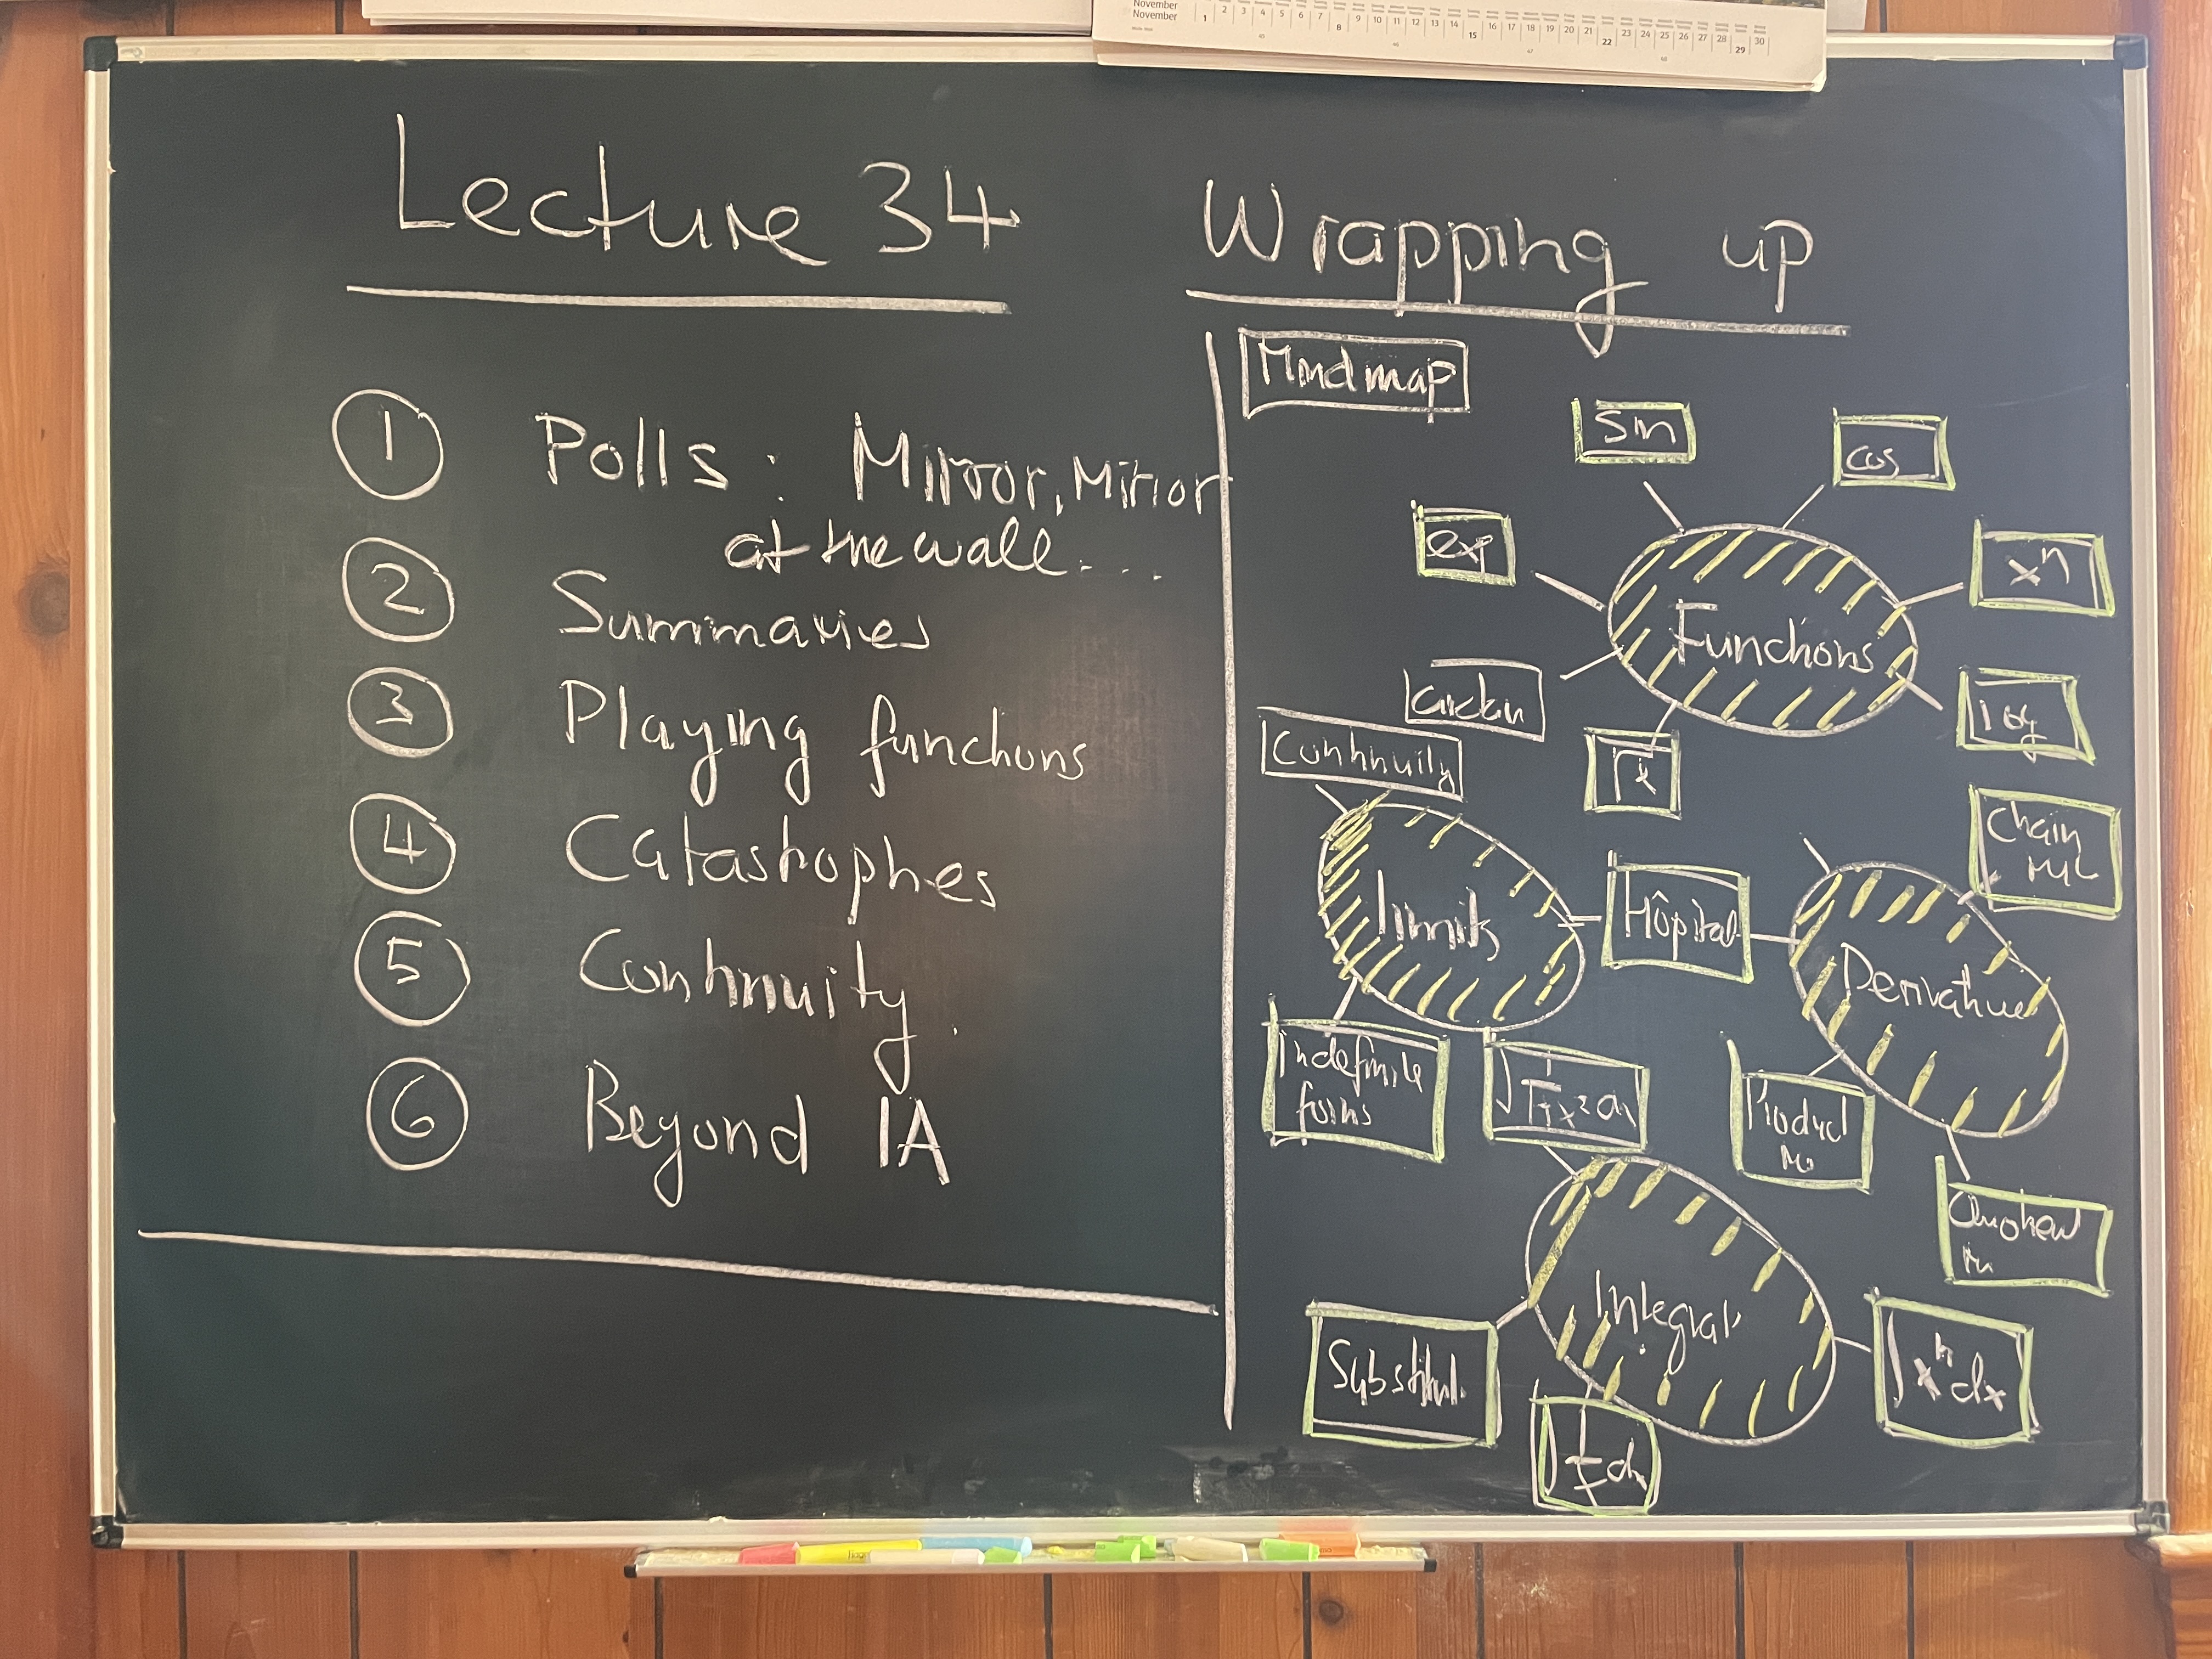 November
November
1 2 3 4 5 6 7 8 9 10 11 12 13 14 15 16 17 18 19 20 21 22 23 24 25 26 27 28 29 30
45 46 47 48
Lecture 34 Wrapping up
1 Polls: Mirror, Mirror
at the wall...
2 Summaries
3 Playing functions
4 Catastrophes
5 Continuity.
6 Beyond 1A
Mindmap
sin
cos
exp
x^n
Functions
arctan
log
√x
Continuity
Chain
rule
limits
Hôpital
Derivative
Indefinite
forms
Product
Quotient
Integral
Substitut.
∫x^n dx
∫ 1/x dx